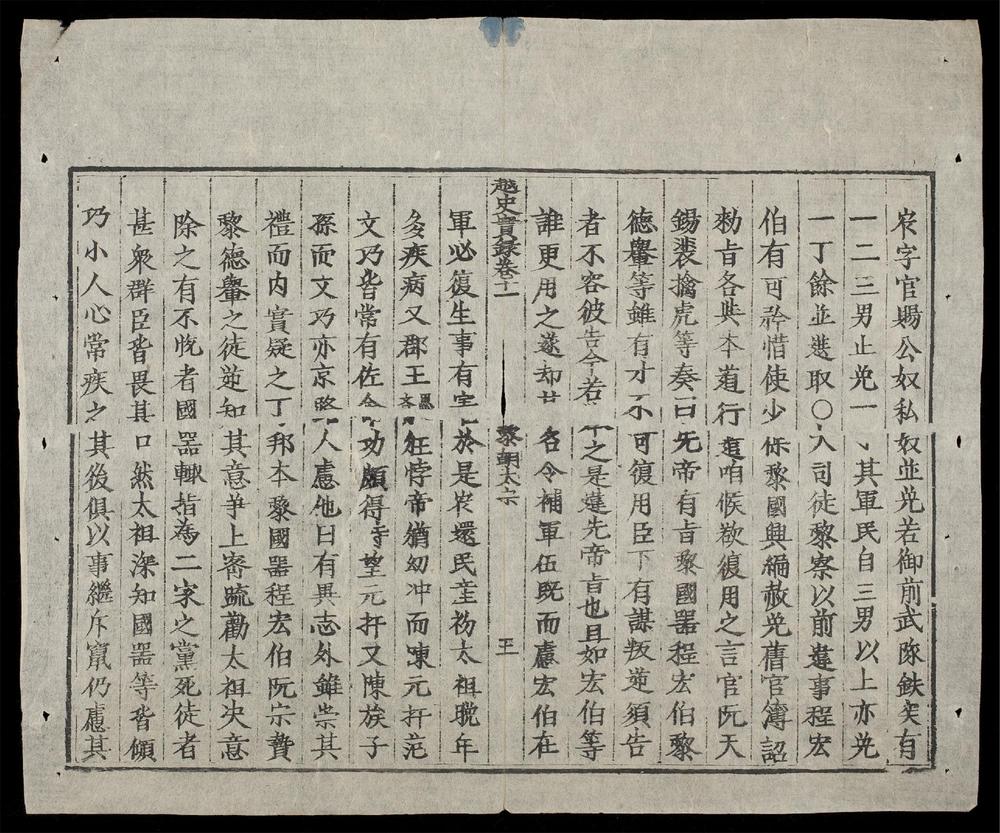 字官賜公奴私奴並免若御前武隊鉄突有
一二三男止免一丶其軍民自三男以上亦免
一丁餘並選取○入司徒黎察以前違事程宏
伯有可矜惜使少保黎國興編赦免舊官簿詔
勑旨各與本道行遣咱候欲復用之言官阮天
錫裴擒虎等奏曰先帝有旨黎國器程宏伯黎
德轝等雖有才不可復用臣下有謀叛逆須告
者不容彼告今若之是違先帝旨也且如宏伯等
誰更用之遂却其名令補軍伍既而慮宏伯在
越史實録卷十一 黎朝太宗 五
軍必復生事有害於是安還民童初太祖晚年
多疾病又郡王思齊狂悖帝猶幼冲而陳元扞范
文巧皆常有佐命功頗得時望元扞又陳族子
孫而文巧亦京路人慮他日有異志外雖崇其
禮而内實疑之丁邦本黎國器程宏伯阮宗贄
黎德轝之徒逆知其意爭上密疏勸太祖决意
除之有不悦者國器輙指為二家之黨死徒者
甚衆群臣皆畏其口然太祖深知國器等皆傾
巧小人心常疾之其後俱以事繼斥竄仍慮其